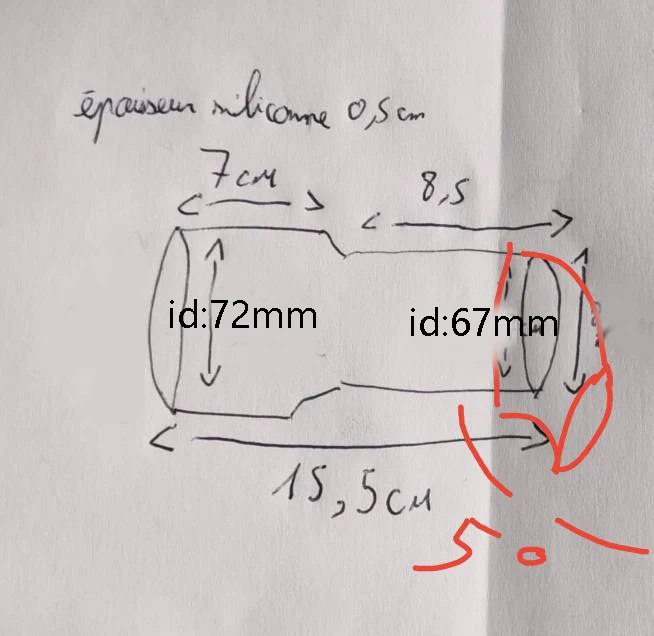 épaisseur siliconne 0,5 cm
7cm
8,5
id:72mm
id:67mm
15,5cm